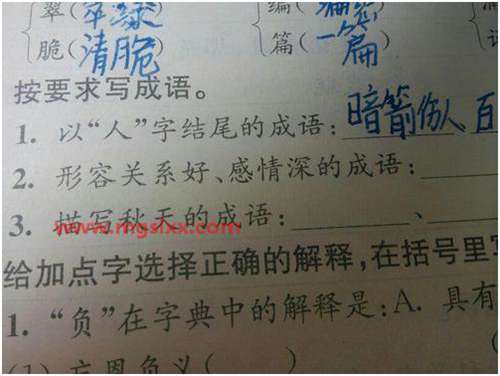 翠(翠绿 编(
脆(清脆) 篇(一篇)
按要求写成语。
1. 以“人”字结尾的成语:暗箭伤人、百
2. 形容关系好、感情深的成语:
3. 描写秋天的成语: 、
www.mgslxx.com
给加点字选择正确的解释,在括号里写
1. “负”在字典中的解释是:A. 具有
(1) 忘恩负义( )